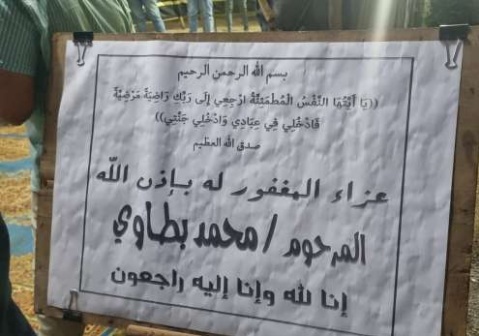 بسم الله الرحمن الرحيم
((يَا أَيَّتُهَا النَّفْسُ الْمُطْمَئِنَّةُ ارْجِعِي إِلَى رَبِّكِ رَاضِيَةً مَرْضِيَّةً
فَادْخُلِي فِي عِبَادِي وَادْخُلِي جَنَّتِي))
صدق الله العظيم
عزاء المغفور له بإذن الله
المرحوم / محمد بطاوي
إنا لله وإنا إليه راجعون